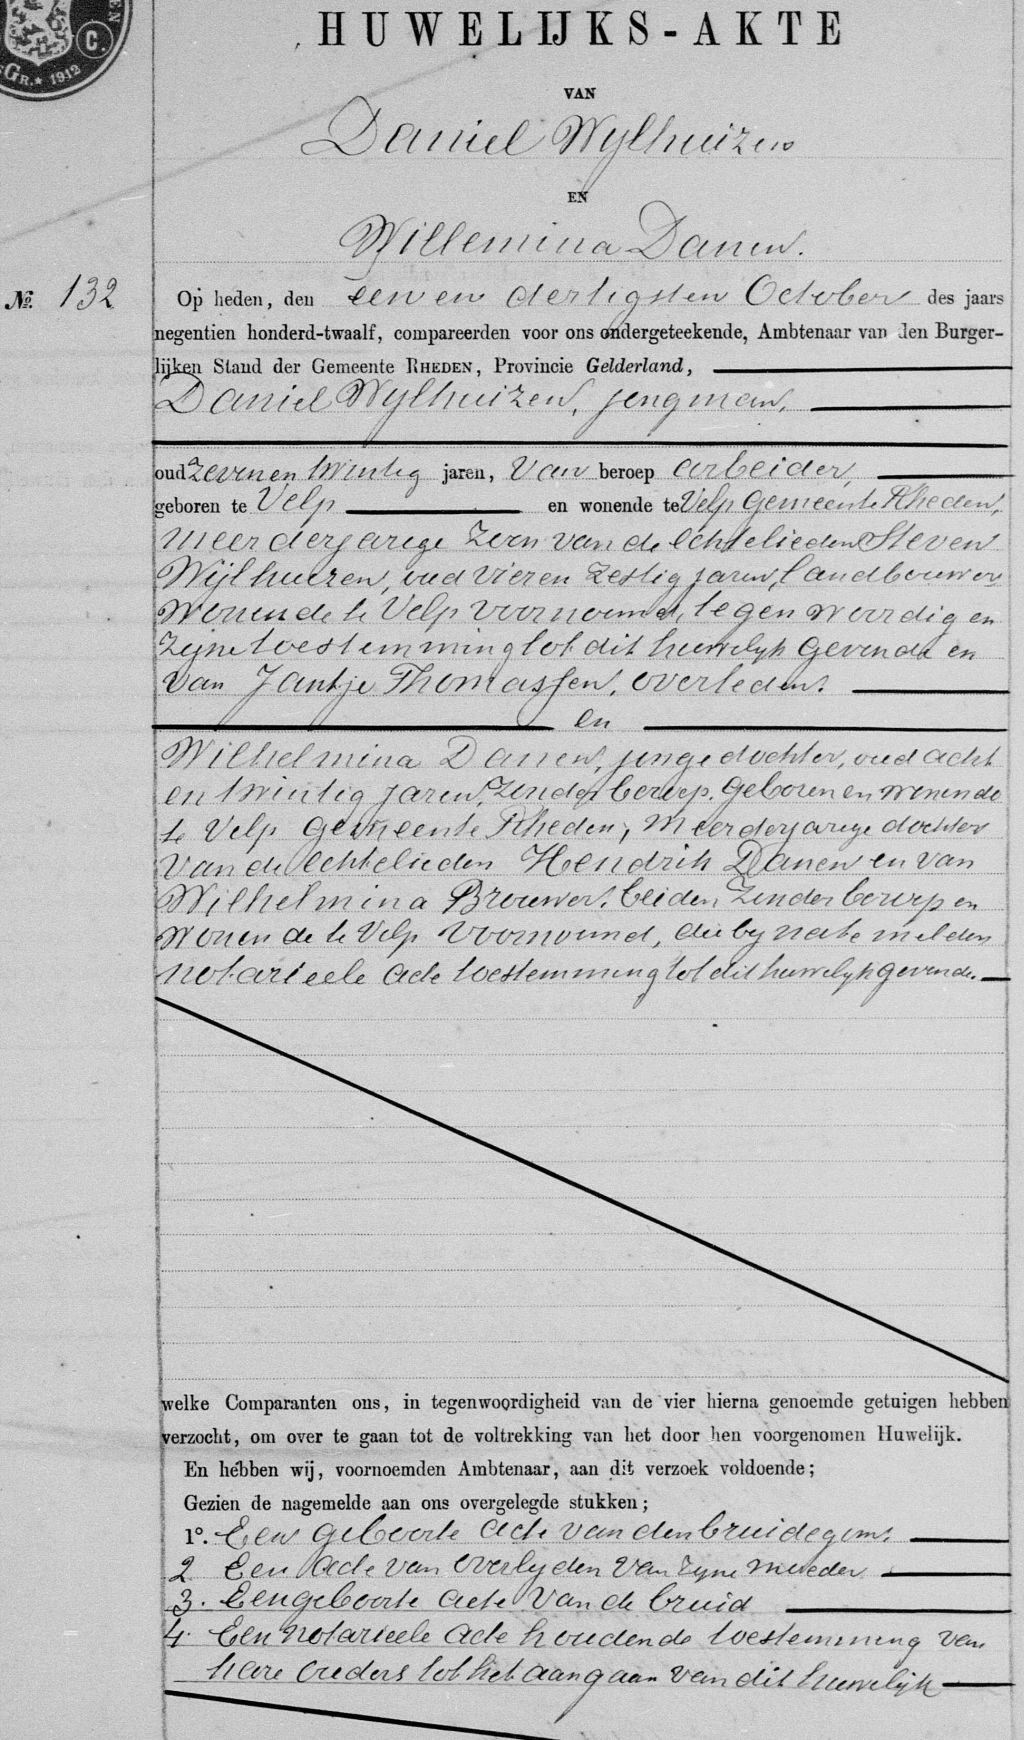 EN
C.
GR. * 1912
HUWELIJKS-AKTE
VAN
Daniel Wylhuizen
EN
Willemina Danen.
No. 132
Op heden, den een en dertigsten October des jaars
negentien honderd-twaalf, compareerden voor ons ondergeteekende, Ambtenaar van den Burger-
lijken Stand der Gemeente RHEDEN, Provincie Gelderland,
Daniel Wylhuizen, jongman,
oud zeven en twintig jaren, van beroep arbeider,
geboren te Velp en wonende te Velp Gemeente Rheden,
meerderjarige zoon van de echtelieden Steven
Wijlhuizen, oud vier en zestig jaren, landbouwer
wonende te Velp voornoemd, tegenwoordig en
zyne toestemming tot dit huwelyk gevende en
van Jantje Thomassen, overleden.
en
Wilhelmina Danen, jonge dochter, oud acht
en twintig jaren, zonder beroep, geboren en wonende
te Velp Gemeente Rheden, meerderjarige dochter
van de echtelieden Hendrik Danen en van
Wilhelmina Brouwer, beiden zonder beroep en
wonende te Velp voornoemd, die by na te melden
notarieele acte toestemming tot dit huwelyk gevende.
welke Comparanten ons, in tegenwoordigheid van de vier hierna genoemde getuigen hebben
verzocht, om over te gaan tot de voltrekking van het door hen voorgenomen Huwelijk.
En hebben wij, voornoemden Ambtenaar, aan dit verzoek voldoende;
Gezien de nagemelde aan ons overgelegde stukken;
1o. Een geboorte acte van den bruidegom.
2 Een acte van overlyden van zyne moeder
3. Een geboorte acte van de bruid
4. Een notarieele acte houdende toestemming van
hare ouders tot het aangaan van dit huwelyk